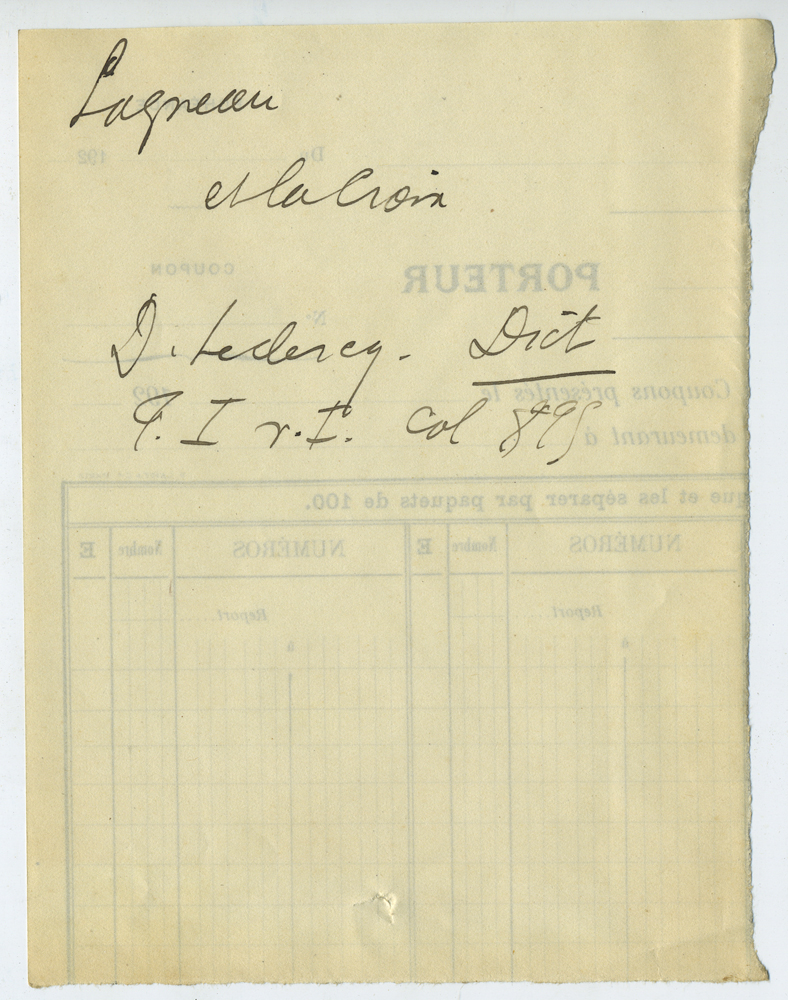 L'agneau
et la Croix
D. Leclercq. Dict
T. I v. I. col 895
192
Du
COUPON
PORTEUR
N°
Coupons présentés le
192
demeurant à
que et les séparer par paquets de 100.
NUMÉROS
Nombre
E
NUMÉROS
Nombre
E
Report
à
Report
à